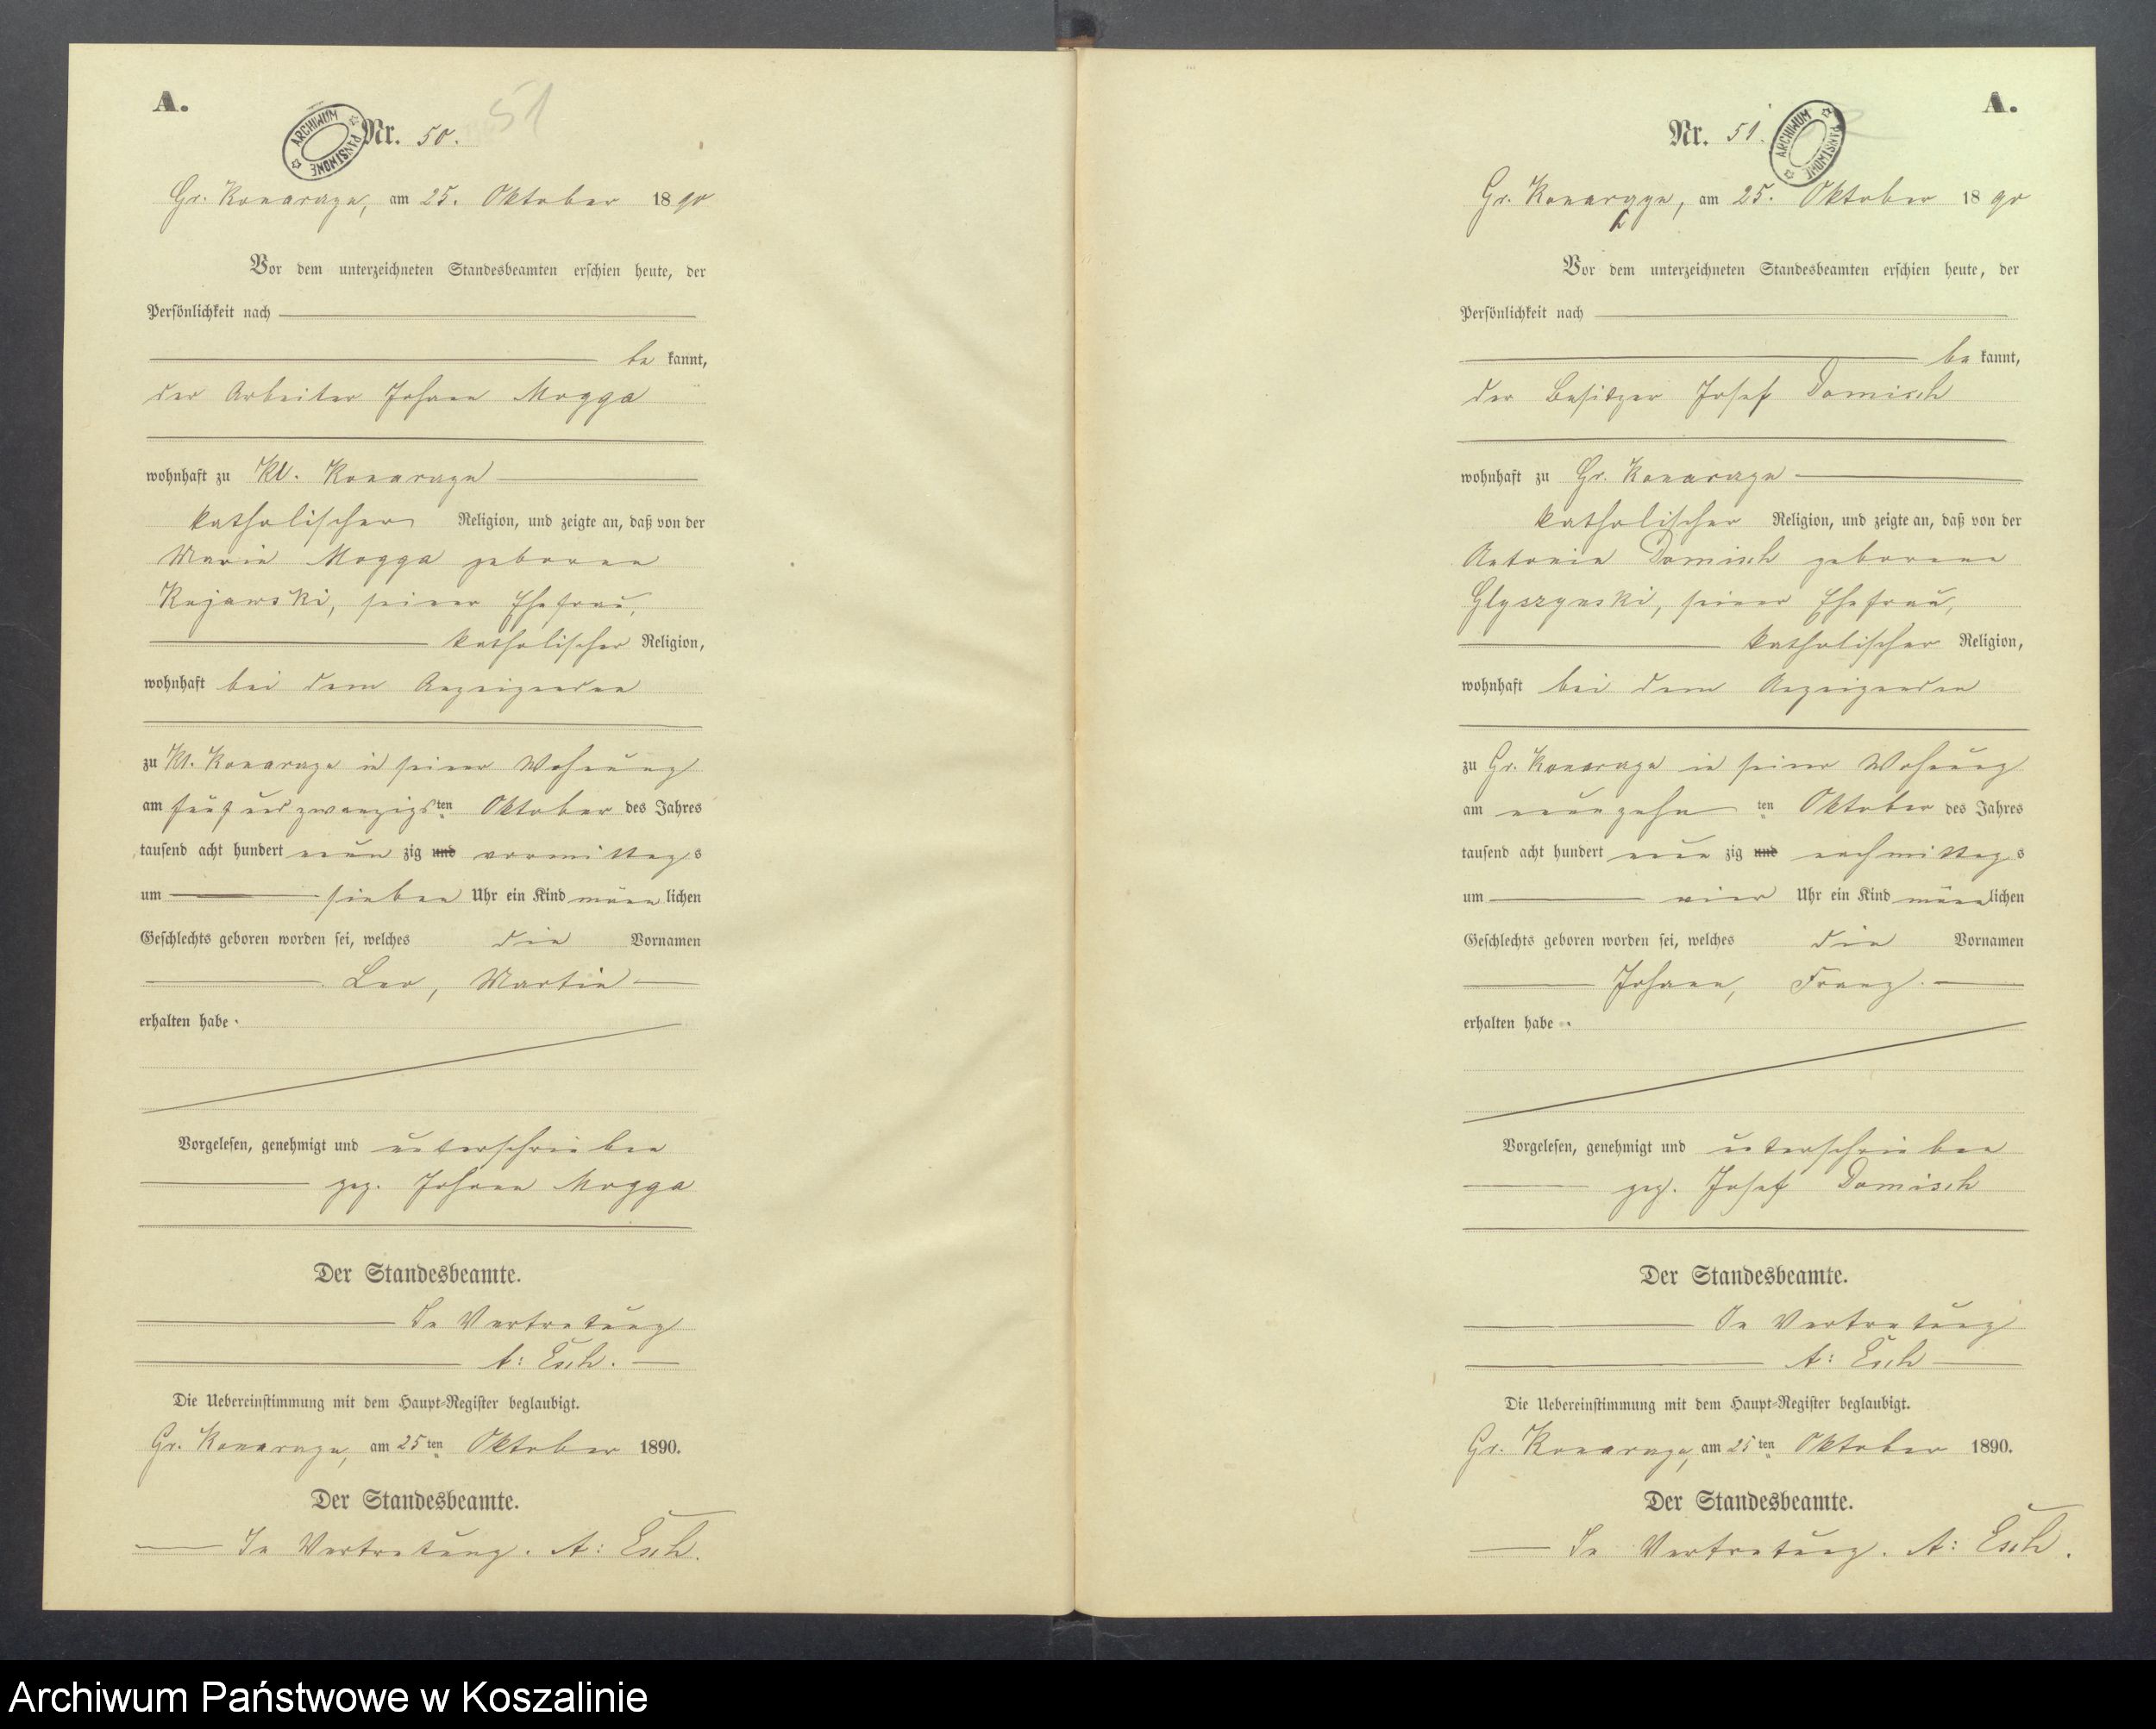 A.
ARCHIWUM PAŃSTWOWE
Nr. 50. 51
Gr. Konarzyn, am 25. Oktober 1890
Vor dem unterzeichneten Standesbeamten erschien heute, der
Persönlichkeit nach
be kannt,
der Arbeiter Johann Mogga
wohnhaft zu Kl. Konarzyn
katholischer Religion, und zeigte an, daß von der
Marie Mogga geborene
Kujawski, seiner Ehefrau,
katholischer Religion,
wohnhaft bei dem Anzeigenden
zu Kl. Konarzyn in seiner Wohnung
am fünfundzwanzigsten Oktober des Jahres
tausend acht hundert neun zig und vormittags
um sieben Uhr ein Kind männlichen
Geschlechts geboren worden sei, welches die Vornamen
Leo, Martin
erhalten habe.
Vorgelesen, genehmigt und unterschrieben
gez. Johann Mogga
Der Standesbeamte.
In Vertretung
A: Esch.
Die Uebereinstimmung mit dem Haupt-Register beglaubigt.
Gr. Konarzyn, am 25ten Oktober 1890.
Der Standesbeamte.
In Vertretung. A: Esch.
A.
Nr. 51.
ARCHIWUM PAŃSTWOWE
Gr. Konarzyn, am 25. Oktober 1890
Vor dem unterzeichneten Standesbeamten erschien heute, der
Persönlichkeit nach
be kannt,
der Besitzer Josef Domisch
wohnhaft zu Gr. Konarzyn
katholischer Religion, und zeigte an, daß von der
Antonie Domisch geborene
Glyszynski, seiner Ehefrau,
katholischer Religion,
wohnhaft bei dem Anzeigenden
zu Gr. Konarzyn in seiner Wohnung
am neunzehn ten Oktober des Jahres
tausend acht hundert neun zig und nachmittags
um vier Uhr ein Kind männlichen
Geschlechts geboren worden sei, welches die Vornamen
Johann, Franz.
erhalten habe.
Vorgelesen, genehmigt und unterschrieben
gez. Josef Domisch
Der Standesbeamte.
In Vertretung
A: Esch
Die Uebereinstimmung mit dem Haupt-Register beglaubigt.
Gr. Konarzyn, am 25ten Oktober 1890.
Der Standesbeamte.
In Vertretung. A: Esch.
Archiwum Państwowe w Koszalinie